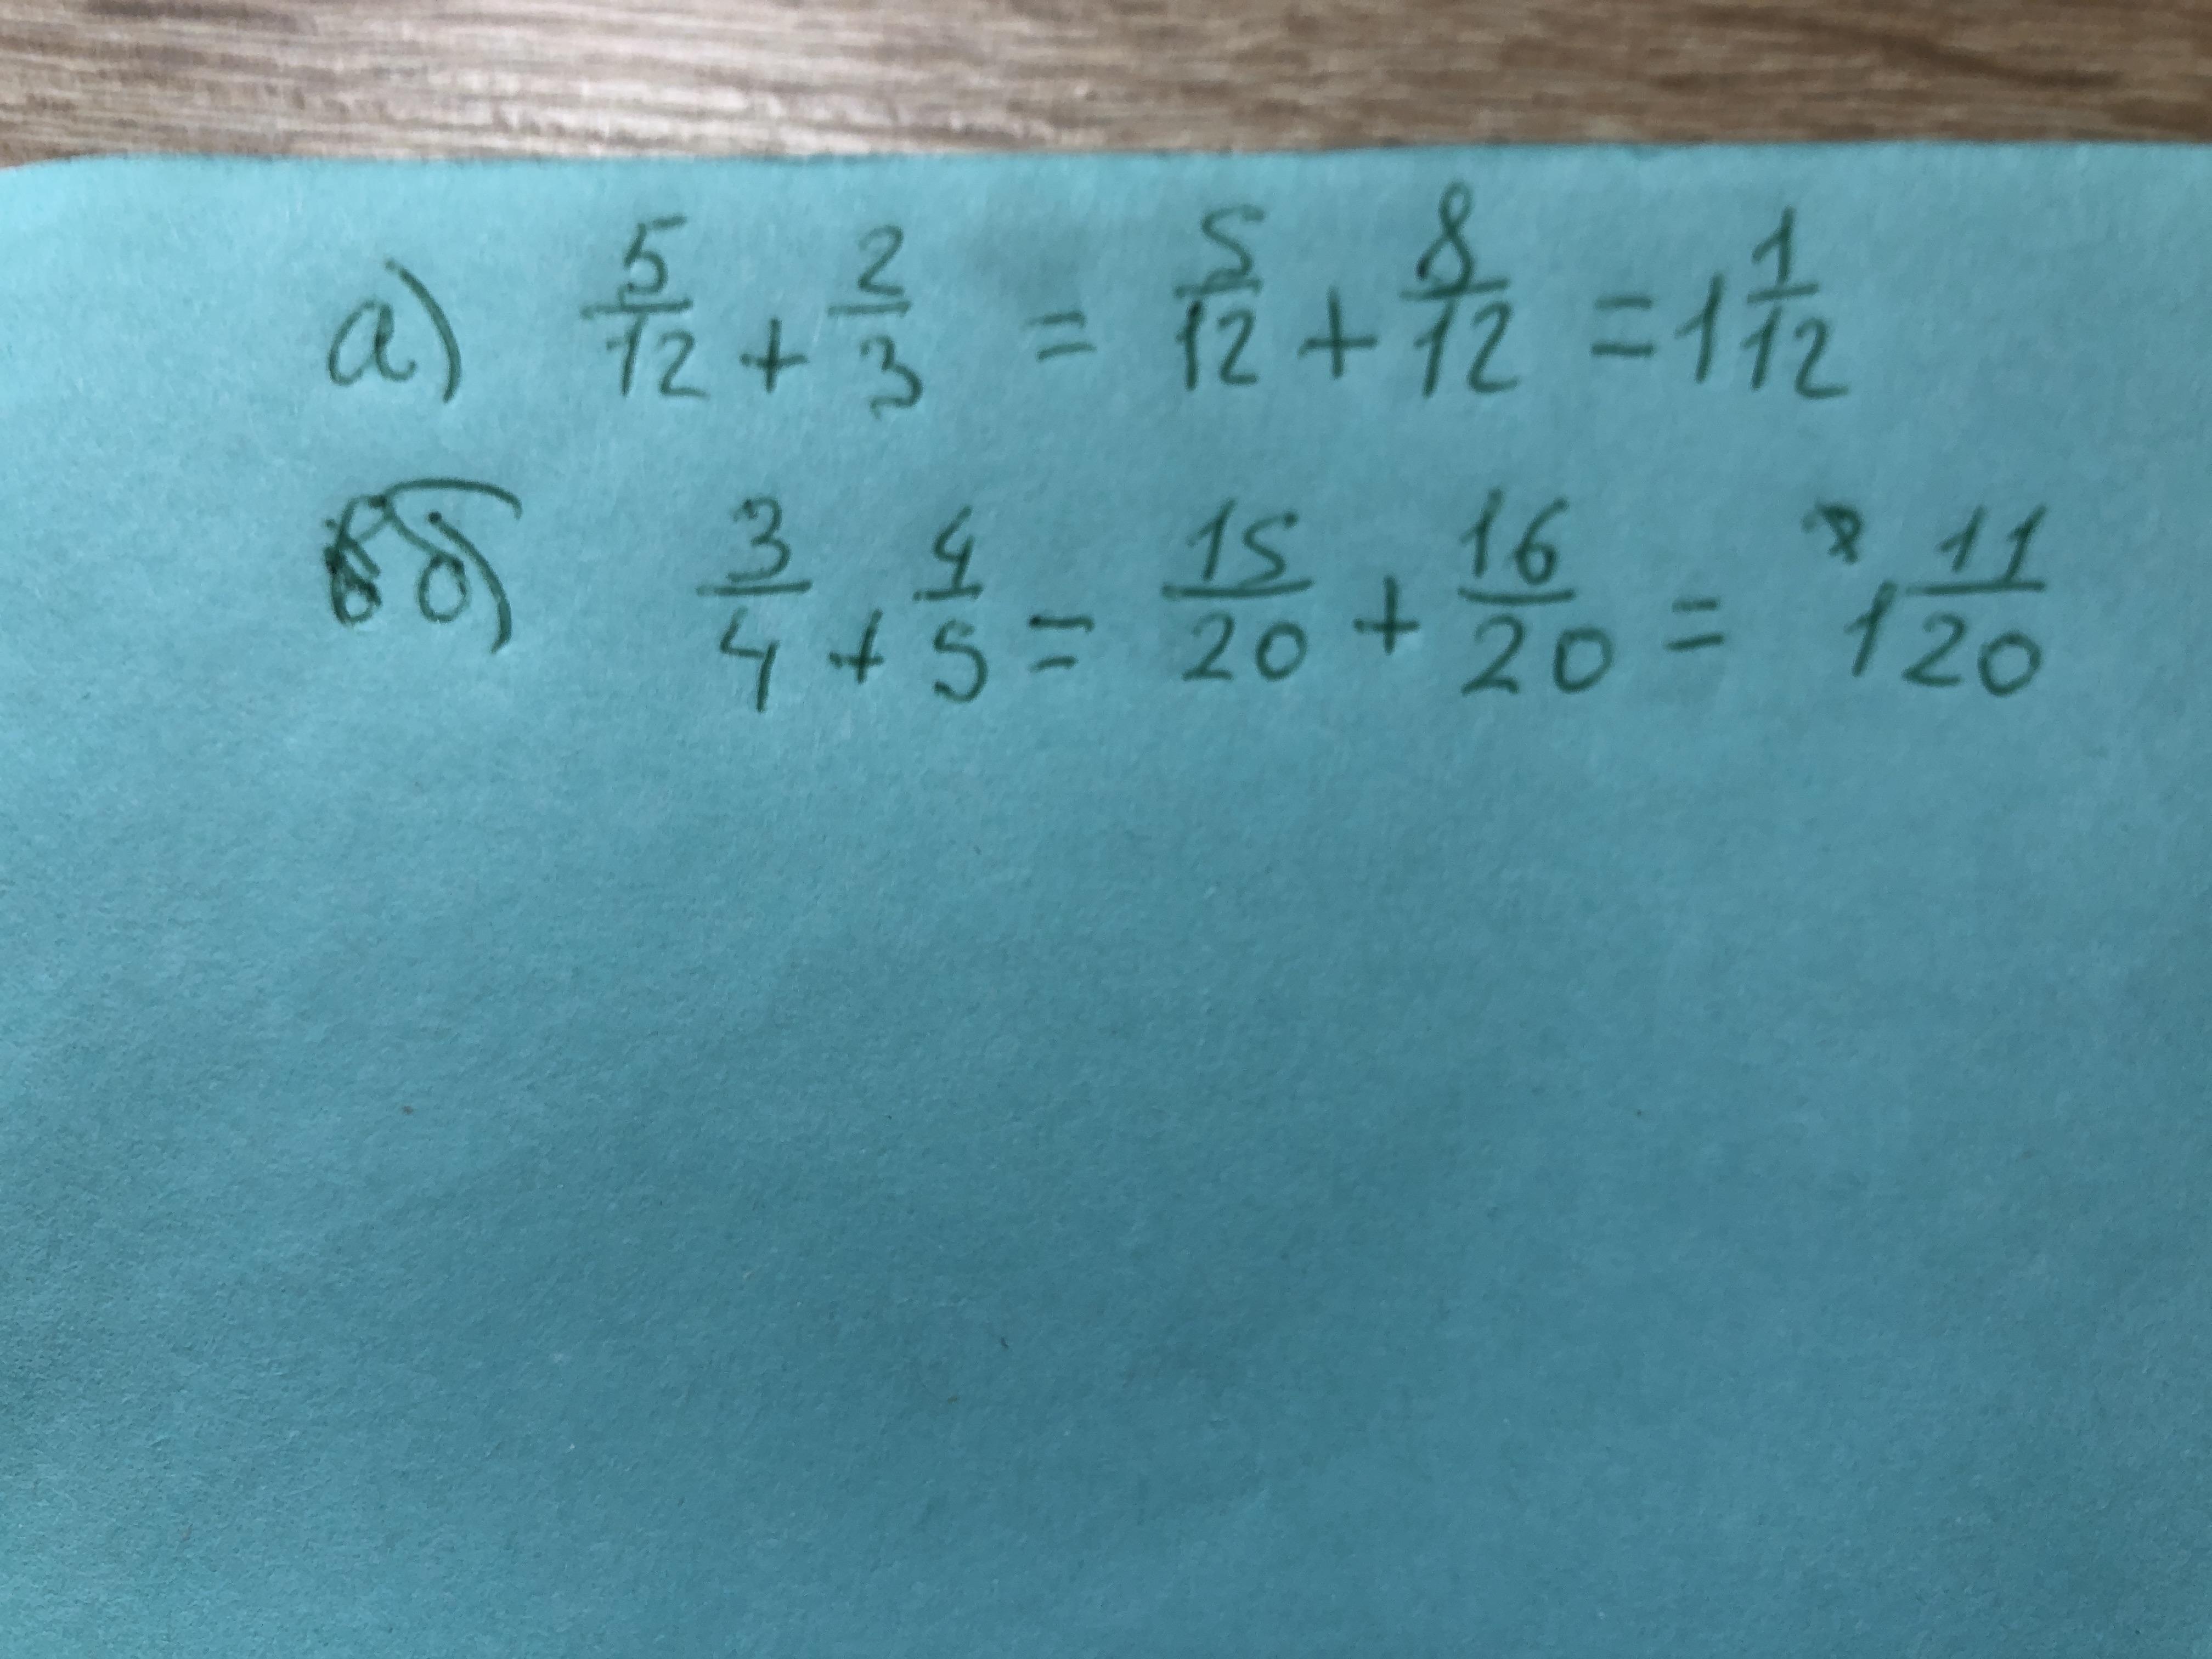 а) 5/12 + 2/3 = 5/12 + 8/12 = 1 1/12
б) 3/4 + 4/5 = 15/20 + 16/20 = 1 11/20